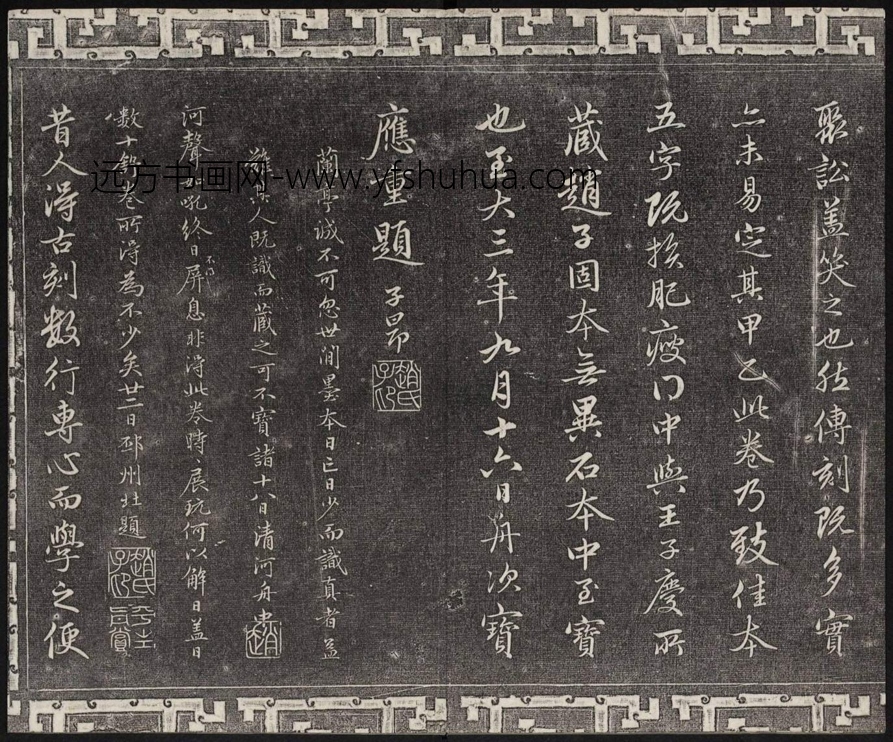 聚訟蓋笑之也然傳刻既多實
亦未易定其甲乙此卷乃致佳本
五字既損肥瘦得中與王子慶所
藏趙子固本無異石本中至寶
也至大三年九月十六日舟次寶
應重題 子昂 趙氏子昂
蘭亭誠不可忽世間墨本日亡日少而識真者蓋
難其人既識而藏之可不寶諸十八日清河舟 趙
河聲如吼終日屏息非得此卷時時展玩何以解日蓋日
不得
數十舒卷所得為不少矣廿二日邳州北題 趙氏子昂
昔人得古刻數行專心而學之便
远方书画网-www.yfshuhua.com